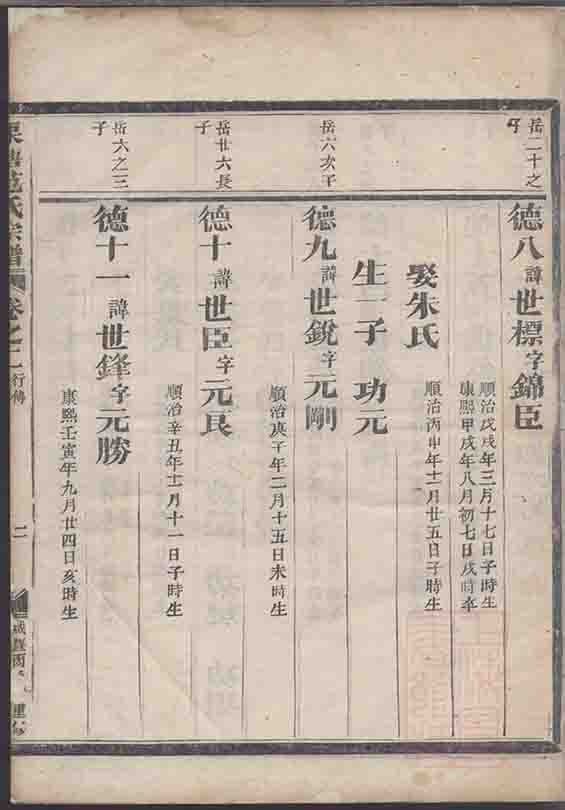 岳二十之
子
德八諱世標字錦臣
順治戊戌年三月十七日子時生
康熙甲戌年八月初七日戌時卒
娶朱氏
順治丙申年十二月廿五日子時生
生一子 功元
岳六次子
德九諱世銳字元剛
順治庚子年二月十五日未時生
岳廿六長
子
德十諱世臣字元良
順治辛丑年十二月十一日子時生
岳六之三
子
德十一諱世鋒字元勝
康熙壬寅年九月廿四日亥時生
范氏宗譜 卷之二 行傳 二